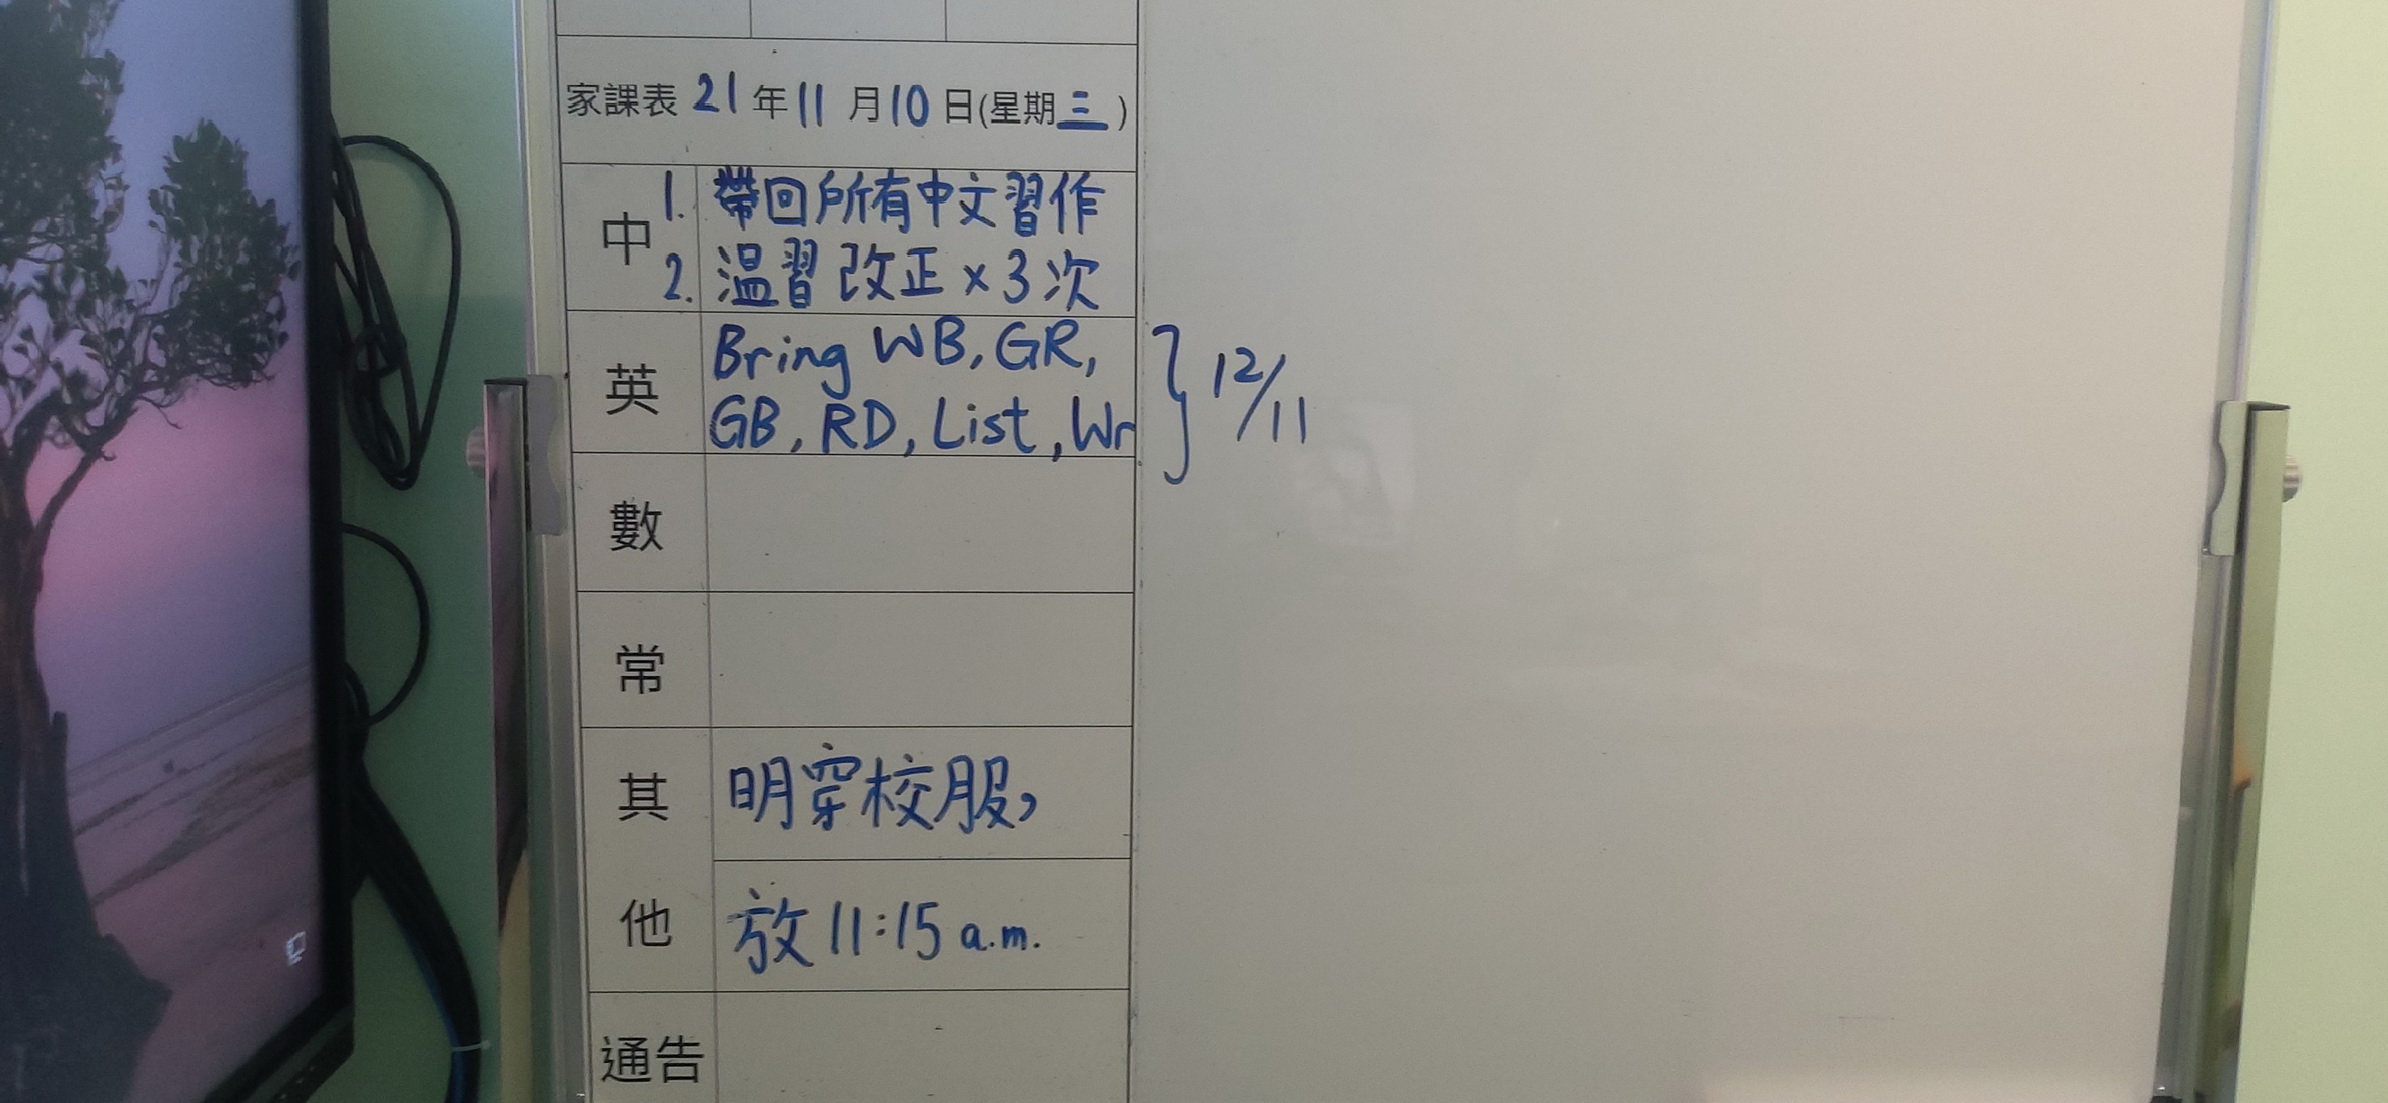 家課表 21年11月10日(星期三)
中 1. 帶回所有中文習作
2. 溫習改正×3次
英 Bring WB, GR,
GB, RD, List, Wr } 12/11
數
常
其 明穿校服,
他 放11:15 a.m.
通告